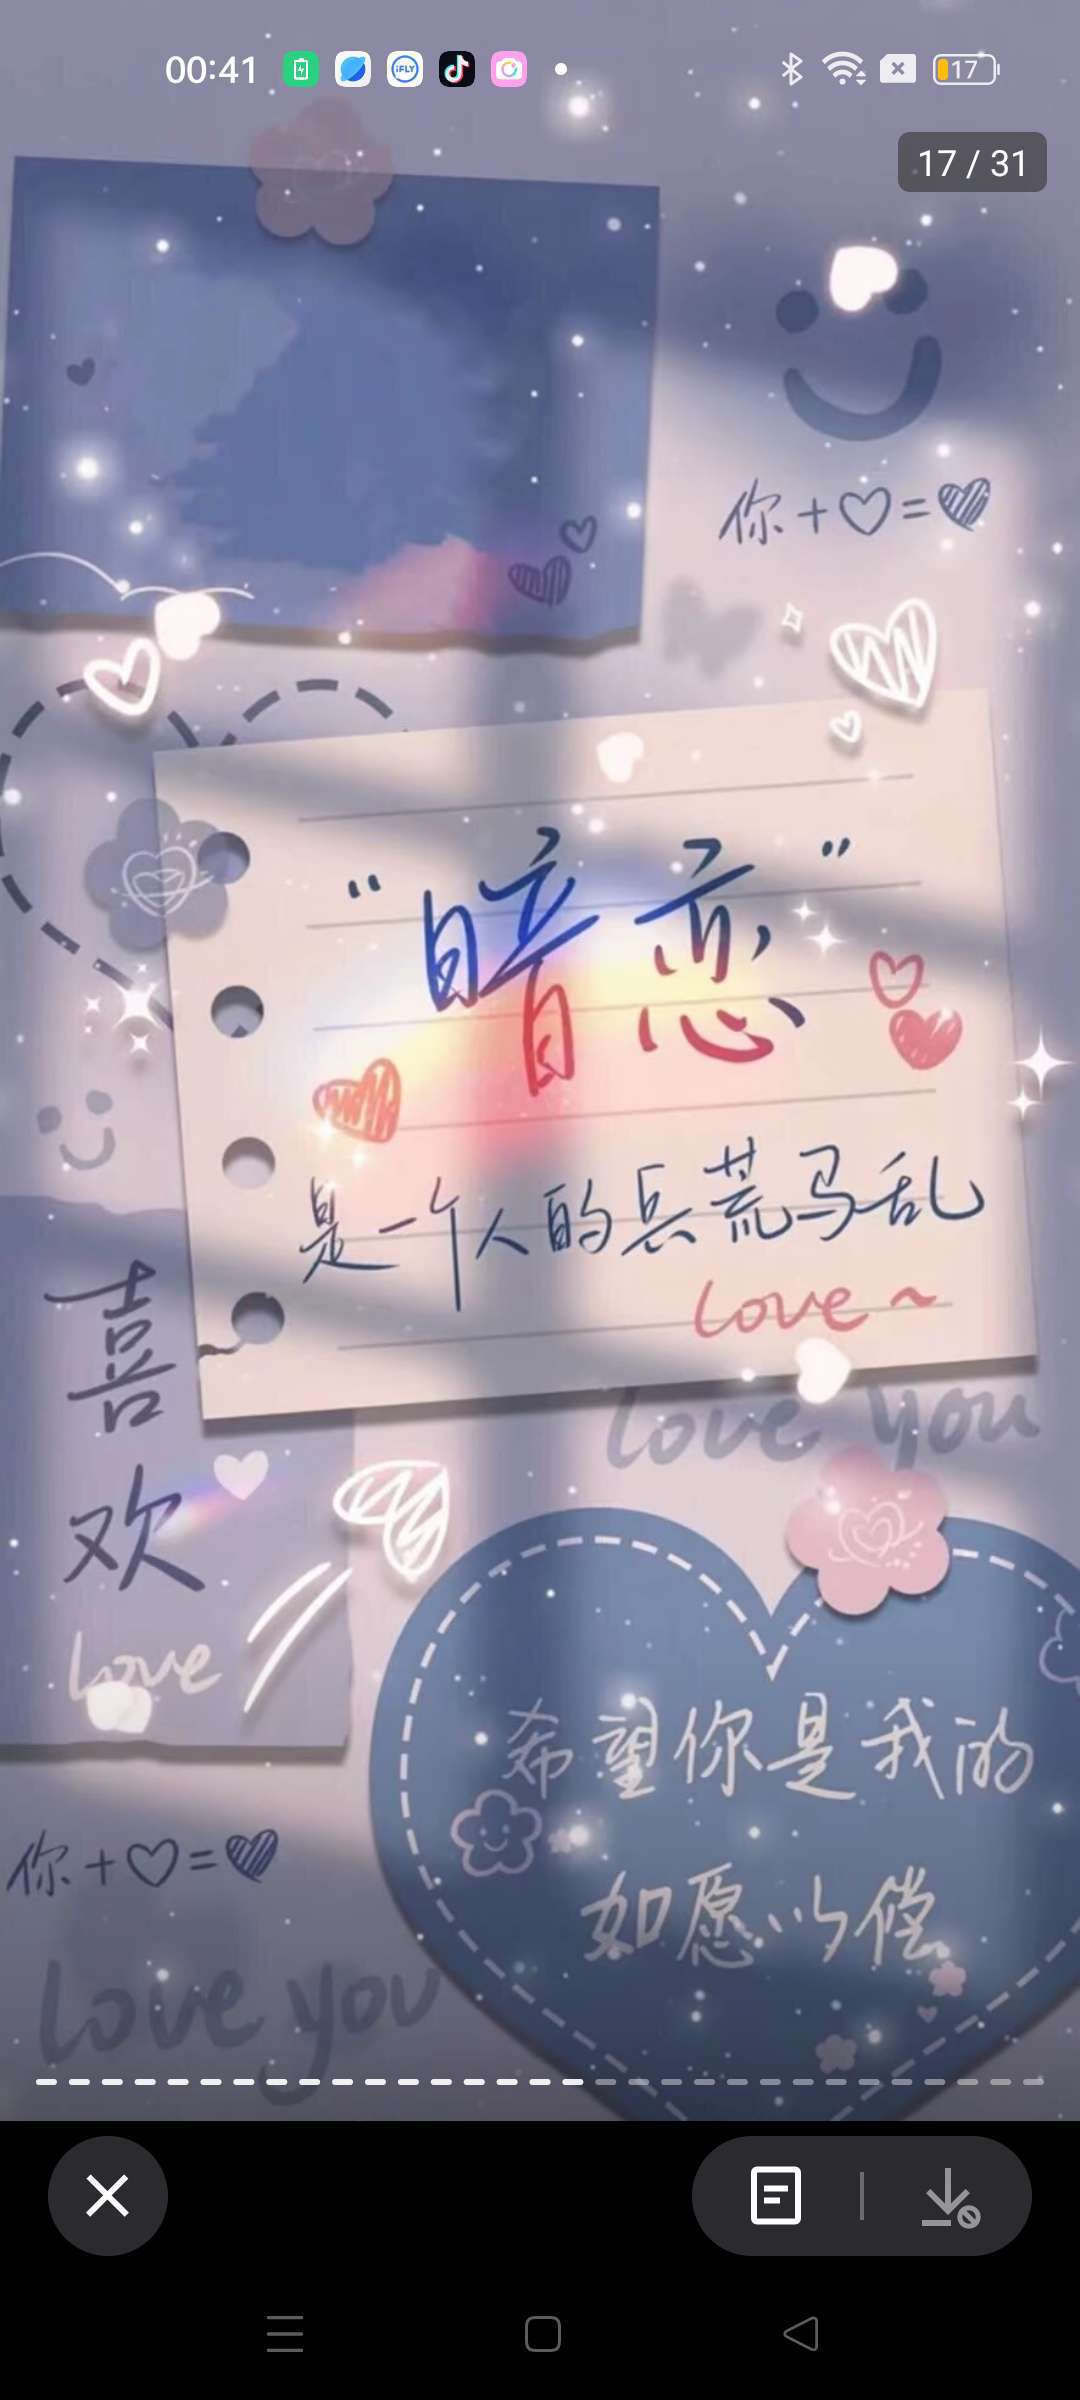 00:41
iFLY
17
17 / 31
你+♡=♥
“暗恋”
是一个人的兵荒马乱
love~
love you
喜
欢
love
希望你是我的
如愿以偿
你+♡=♥
love you